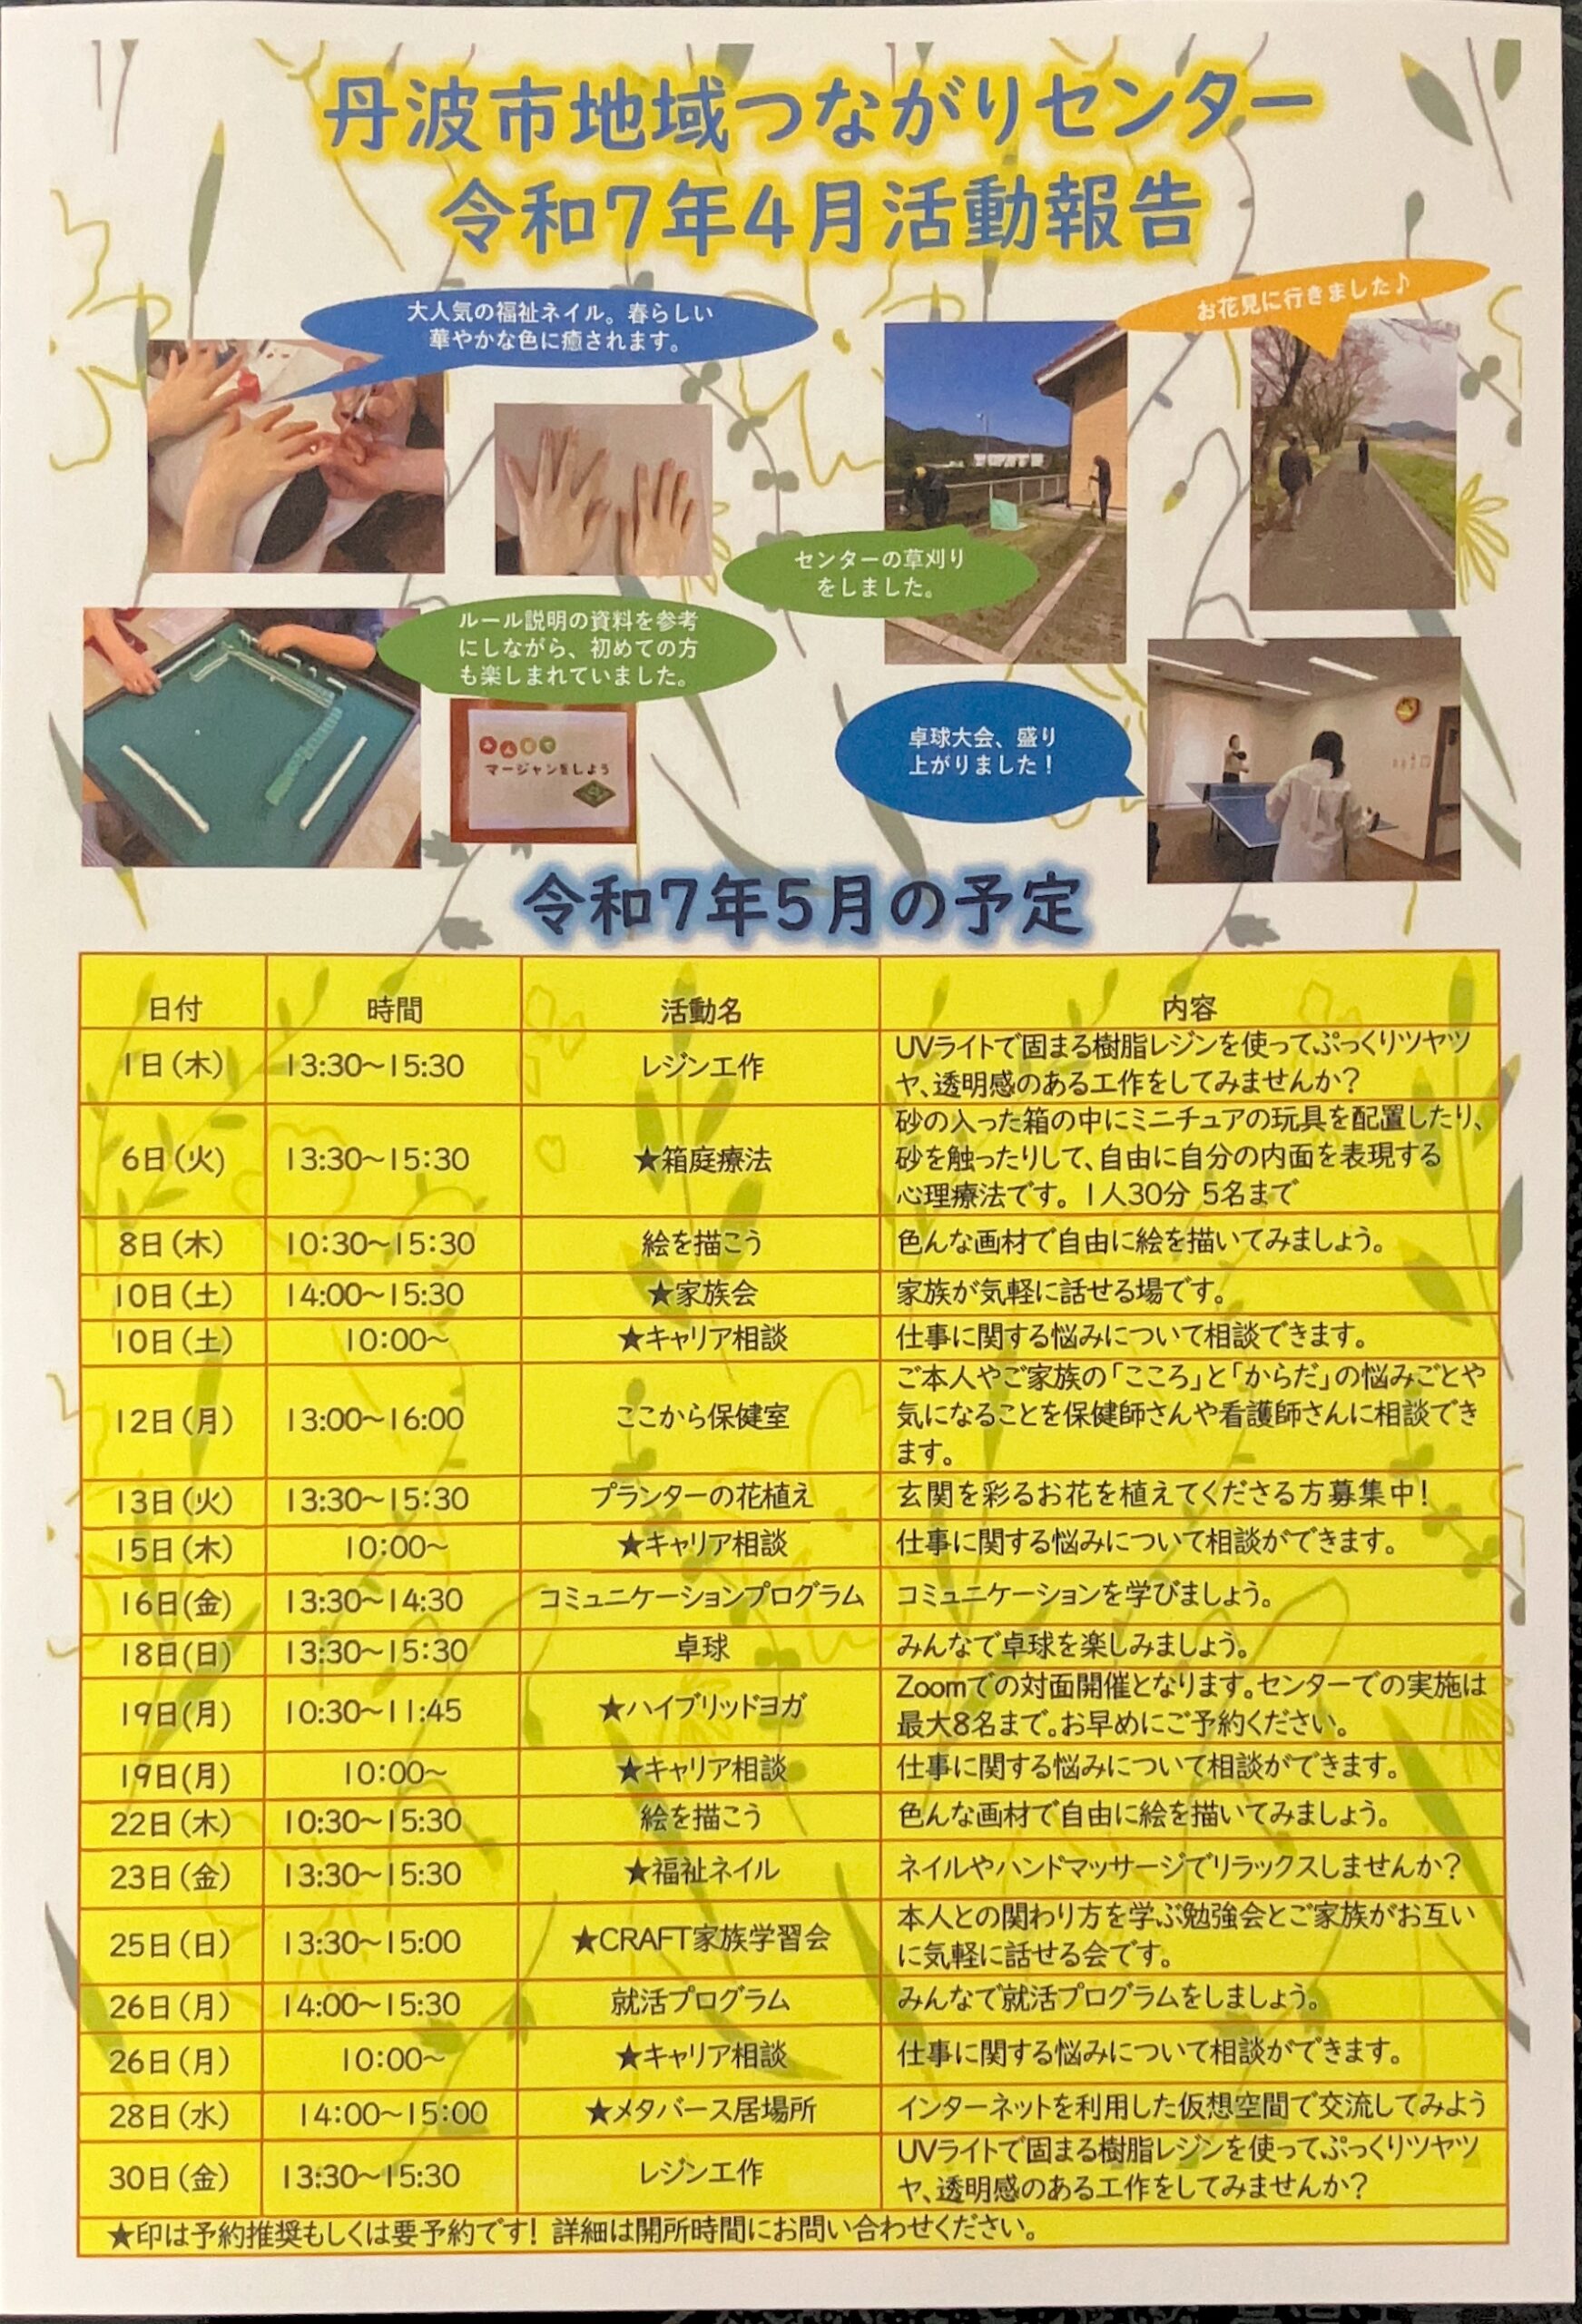 丹波市地域つながりセンター
令和7年4月活動報告
大人気の福祉ネイル。春らしい
華やかな色に癒されます。
お花見に行きました♪
センターの草刈り
をしました。
ルール説明の資料を参考
にしながら、初めての方
も楽しまれていました。
みんなで
マージャンをしよう
卓球大会、盛り
上がりました！
令和7年5月の予定
日付 時間 活動名 内容
1日(木) 13:30～15:30 レジン工作 UVライトで固まる樹脂レジンを使ってぷっくりツヤツ
ヤ、透明感のある工作をしてみませんか？
6日(火) 13:30～15:30 ★箱庭療法 砂の入った箱の中にミニチュアの玩具を配置したり、
砂を触ったりして、自由に自分の内面を表現する
心理療法です。1人30分 5名まで
8日(木) 10:30～15:30 絵を描こう 色んな画材で自由に絵を描いてみましょう。
10日(土) 14:00～15:30 ★家族会 家族が気軽に話せる場です。
10日(土) 10:00～ ★キャリア相談 仕事に関する悩みについて相談できます。
12日(月) 13:00～16:00 ここから保健室 ご本人やご家族の「こころ」と「からだ」の悩みごとや
気になることを保健師さんや看護師さんに相談でき
ます。
13日(火) 13:30～15:30 プランターの花植え 玄関を彩るお花を植えてくださる方募集中！
15日(木) 10:00～ ★キャリア相談 仕事に関する悩みについて相談ができます。
16日(金) 13:30～14:30 コミュニケーションプログラム コミュニケーションを学びましょう。
18日(日) 13:30～15:30 卓球 みんなで卓球を楽しみましょう。
19日(月) 10:30～11:45 ★ハイブリッドヨガ Zoomでの対面開催となります。センターでの実施は
最大8名まで。お早めにご予約ください。
19日(月) 10:00～ ★キャリア相談 仕事に関する悩みについて相談ができます。
22日(木) 10:30～15:30 絵を描こう 色んな画材で自由に絵を描いてみましょう。
23日(金) 13:30～15:30 ★福祉ネイル ネイルやハンドマッサージでリラックスしませんか？
25日(日) 13:30～15:00 ★CRAFT家族学習会 本人との関わり方を学ぶ勉強会とご家族がお互い
に気軽に話せる会です。
26日(月) 14:00～15:30 就活プログラム みんなで就活プログラムをしましょう。
26日(月) 10:00～ ★キャリア相談 仕事に関する悩みについて相談ができます。
28日(水) 14:00～15:00 ★メタバース居場所 インターネットを利用した仮想空間で交流してみよう
30日(金) 13:30～15:30 レジン工作 UVライトで固まる樹脂レジンを使ってぷっくりツヤツ
ヤ、透明感のある工作をしてみませんか？
★印は予約推奨もしくは要予約です！ 詳細は開所時間にお問い合わせください。